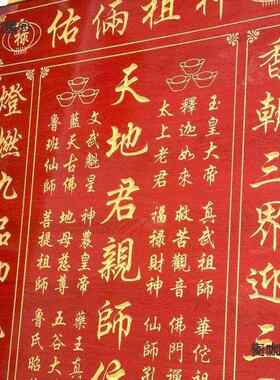 祿
佑倆祖神
香朝三界迎
玉皇大帝 真武祖師 華佗祖
釋迦如來 救苦觀音 佛門運
太上老君 福祿財神 仙師孔
天地君親師位
文武魁星 神農皇帝 藥王真
藍天古佛 地母慈尊 五谷大
魯班仙師 菩提祖師 魯氏昭
燈燃九品功